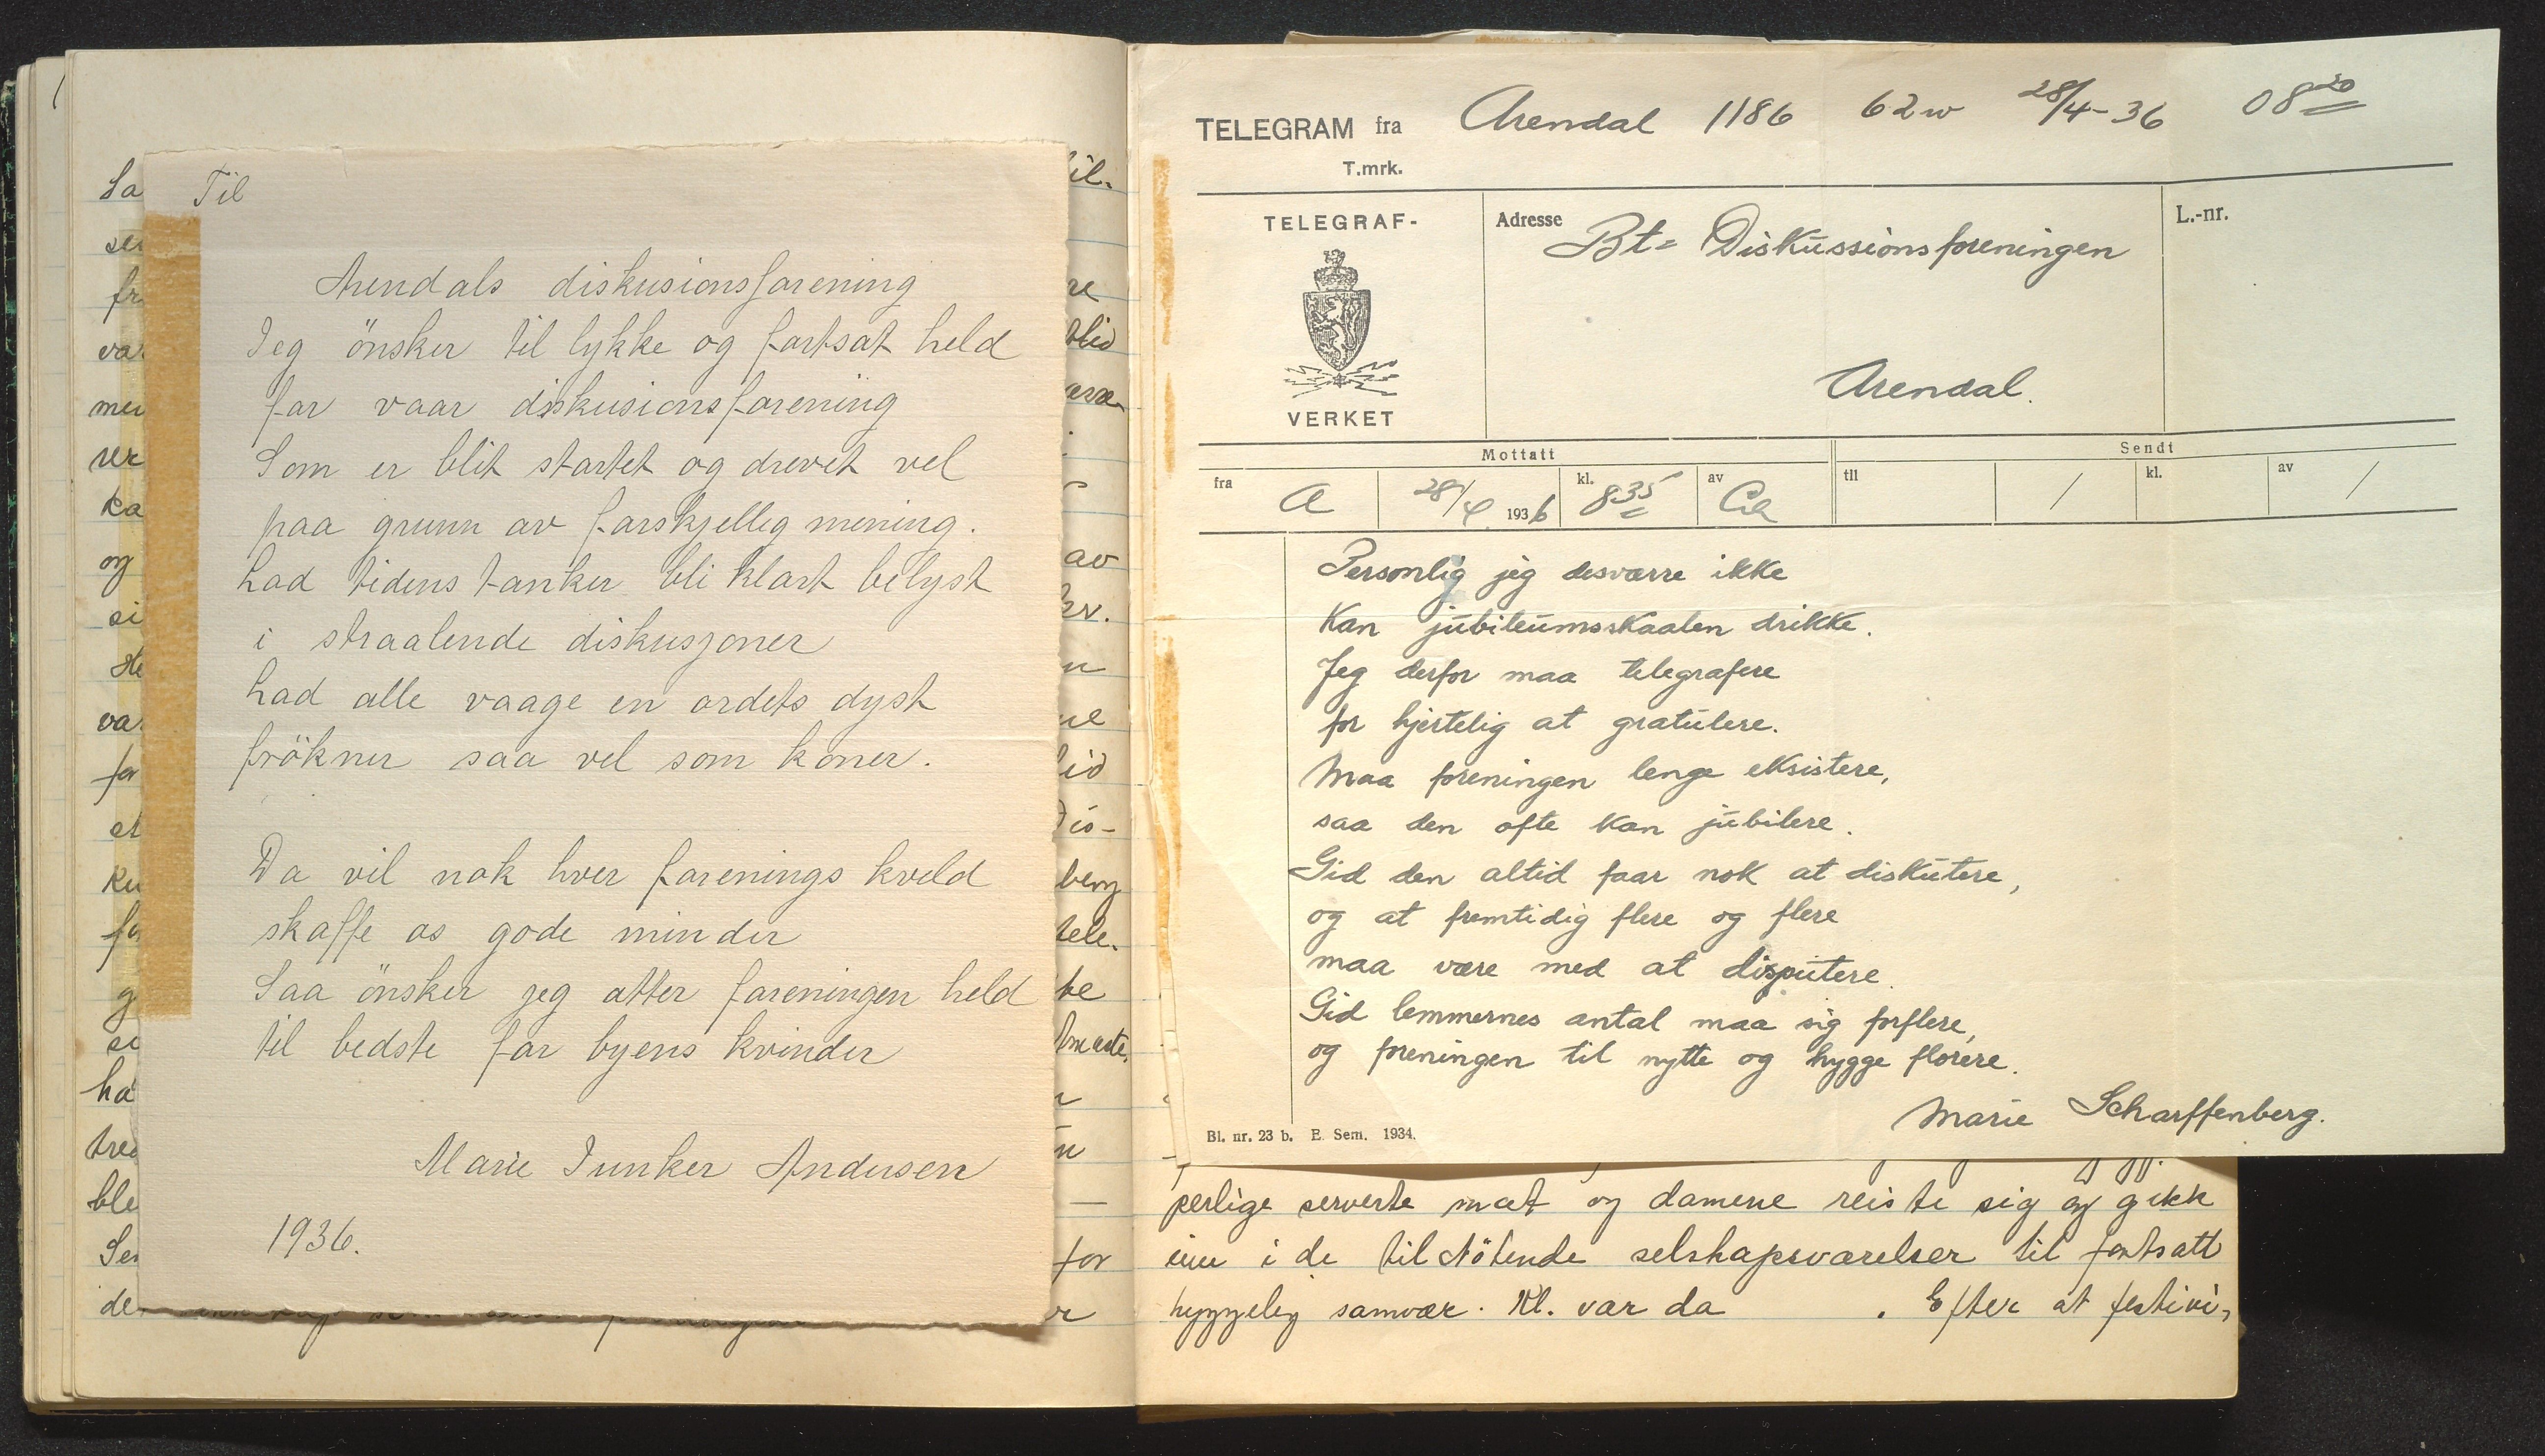 Til
Arendals diskusionsforening
Jeg önsker til lykke og fortsat held
for vaar diskusionsforening
Som er blit startet og drevet vel
paa grunn av forskjellig mening.
Lad tidens tanker bli klart belyst
i straalende diskusjoner
Lad alle vaage en ordets dyst
frökner saa vel som koner.
Da vil nok hver forenings kveld
skaffe os gode minder
Saa önsker jeg atter foreningen held
til bedste for byens kvinder
Marie Junker Andersen
1936.
TELEGRAM fra Arendal 1186 62w 28/4-36 08 20
T.mrk.
TELEGRAF-
VERKET
Adresse Bt= Diskussionsforeningen
Arendal.
L.-nr.
Mottatt
Sendt
fra A 28/4 1936 kl. 8 35 av
til / kl. av /
Personlig jeg desværre ikke
kan jubileumsskaalen drikke.
Jeg derfor maa telegrafere
for hjertelig at gratulere.
Maa foreningen lenge eksistere,
saa den ofte kan jubilere.
Gid den altid faar nok at diskutere,
og at fremtidig flere og flere
maa være med at disputere.
Gid lemmernes antal maa sig forflere,
og foreningen til nytte og hygge florere.
Marie Scharffenberg.
Bl. nr. 23 b. E. Sem. 1934.
perlige serverte mat og damene reiste sig og gikk
inn i de tilstötende selskapsværelser til fortsatt
hyggelig samvær. Kl. var da . Efter at festivi-